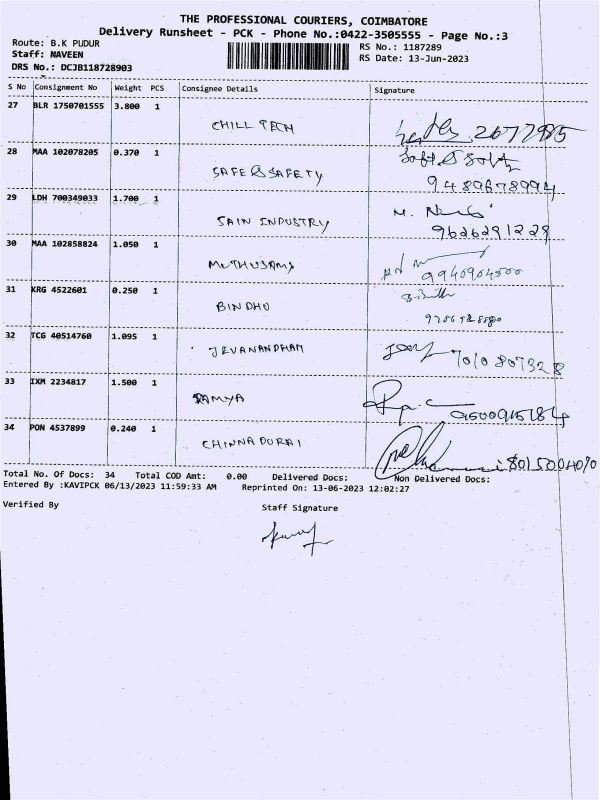 THE PROFESSIONAL COURIERS, COIMBATORE
Delivery Runsheet - PCK - Phone No.:0422-3505555 - Page No.:3
Route: B.K PUDUR
RS No.: 1187289
Staff: NAVEEN
RS Date: 13-Jun-2023
DRS No.: DCJB118728903
S No Consignment No Weight PCS Consignee Details Signature
27 BLR 1750701555 3.800 1
CHILL TECH
28 MAA 102078205 0.370 1
SAFE & SAFETY
9489678994
29 LDH 700349033 1.700 1
SAIN INDUSTRY
9626291229
30 MAA 102858824 1.050 1
MUTHUSAMY
9940904500
31 KRG 4522601 0.250 1
BINDHU
32 TCG 40514760 1.095 1
JEVANANDHAM
7010807328
33 IXM 2234817 1.500 1
RAMYA
34 PON 4537899 0.240 1
CHINNA DURAI
8015004070
Total No. Of Docs: 34 Total COD Amt: 0.00 Delivered Docs: Non Delivered Docs:
Entered By :KAVIPCK 06/13/2023 11:59:33 AM Reprinted On: 13-06-2023 12:02:27
Verified By Staff Signature